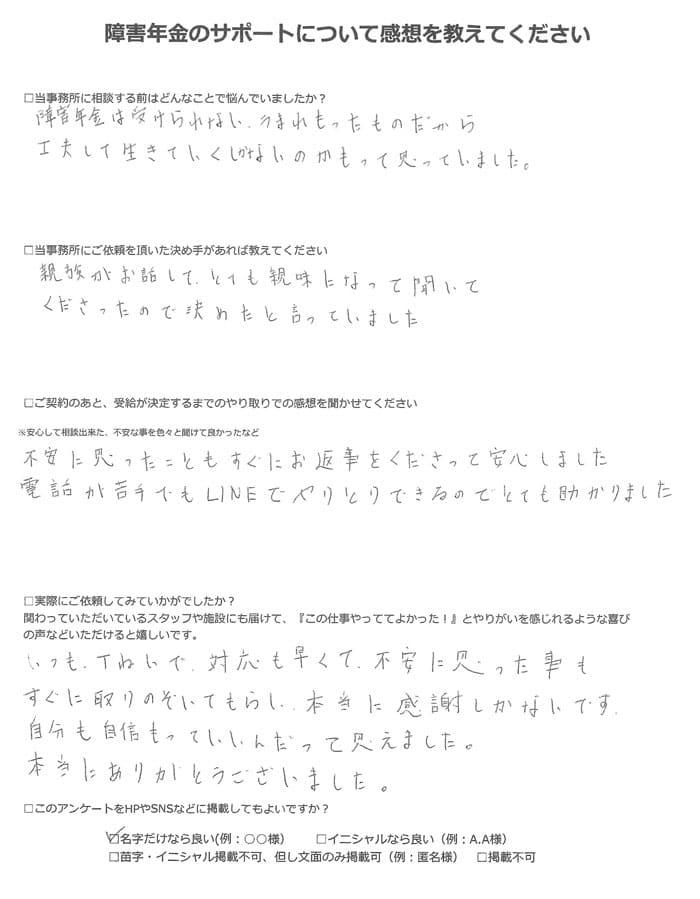 障害年金のサポートについて感想を教えてください
□当事務所に相談する前はどんなことで悩んでいましたか？
障害年金は受けられない、うまれもったものだから
工夫して生きていくしかないのかもって思っていました。
□当事務所にご依頼を頂いた決め手があれば教えてください
親族がお話して、とても親味になって聞いて
くださったので決めたと言っていました
□ご契約のあと、受給が決定するまでのやり取りでの感想を聞かせてください
※安心して相談出来た、不安な事を色々と聞けて良かったなど
不安に思ったこともすぐにお返事をくださって安心しました
電話が苦手でもLINEでやりとりできるのでとても助かりました
□実際にご依頼してみていかがでしたか？
関わっていただいているスタッフや施設にも届けて、『この仕事やっててよかった！』とやりがいを感じれるような喜び
の声などいただけると嬉しいです。
いつも、丁ねいで、対応も早くて、不安に思った事も
すぐに取りのぞいてもらい、本当に感謝しかないです、
自分も自信もっていいんだって思えました。
本当にありがとうございました。
□このアンケートをHPやSNSなどに掲載してもよいですか？
☑名字だけなら良い(例：〇〇様） □イニシャルなら良い（例：A.A様）
□苗字・イニシャル掲載不可、但し文面のみ掲載可（例：匿名様） □掲載不可